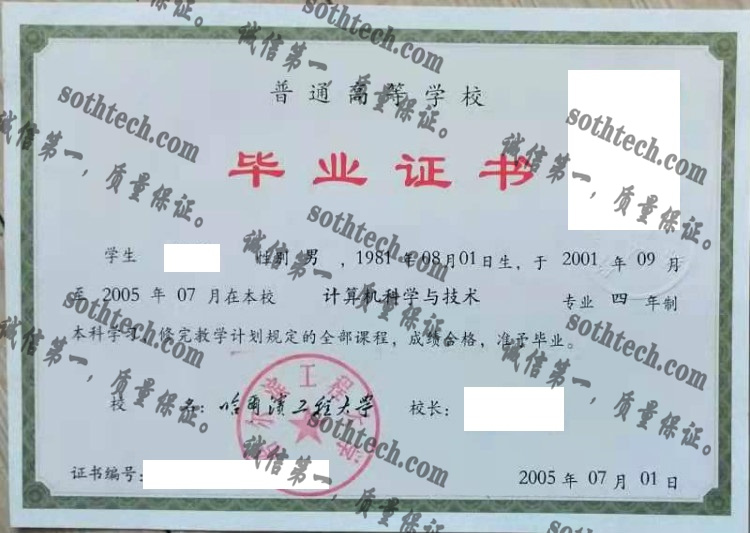 普通高等学校
毕业证书
学生 性别 男 ，1981 年 08月 01日生，于 2001 年 09 月
至 2005 年 07 月在本校 计算机科学与技术 专业 四 年制
本科学习，修完教学计划规定的全部课程，成绩合格，准予毕业。
校 名：哈尔滨工程大学 校长：
证书编号：
2005 年 07 月 01 日
sothtech.com
诚信第一，质量保证。
sothtech.com
诚信第一，质量保证。
sothtech.com
诚信第一，质量保证。
sothtech.com
诚信第一，质量保证。
sothtech.com
诚信第一，质量保证。
sothtech.com
诚信第一，质量保证。
sothtech.com
诚信第一，质量保证。